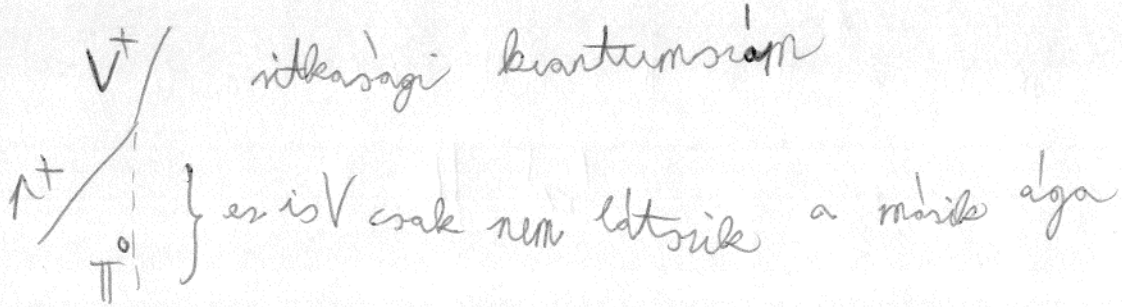 V⁺ ritkasági kvantumszám
p⁺ } ez is V csak nem látszik a másik ága
π⁰